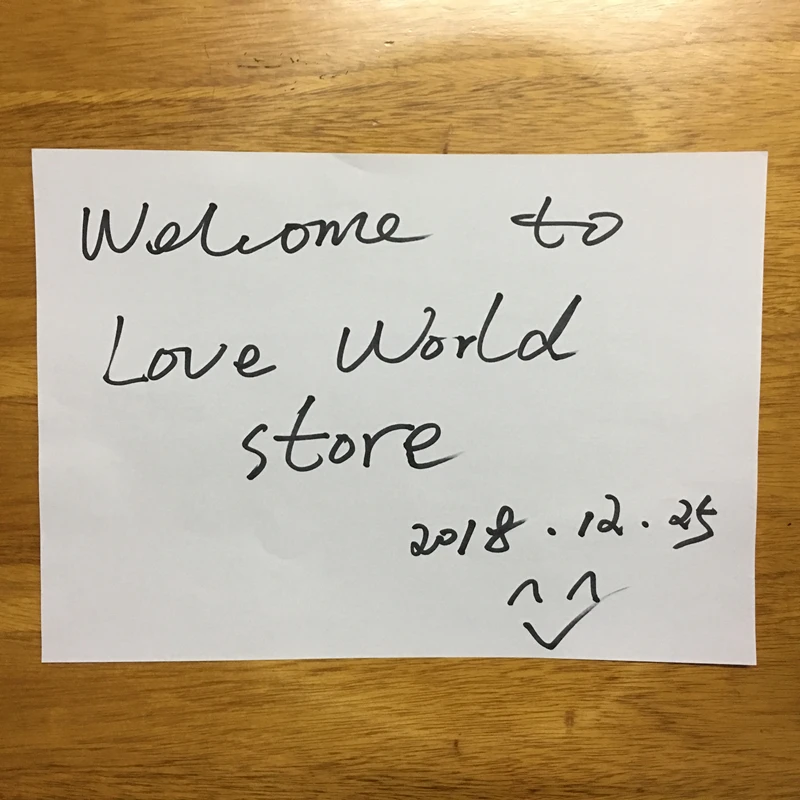 Welcome to
Love World
store
2018.12.25